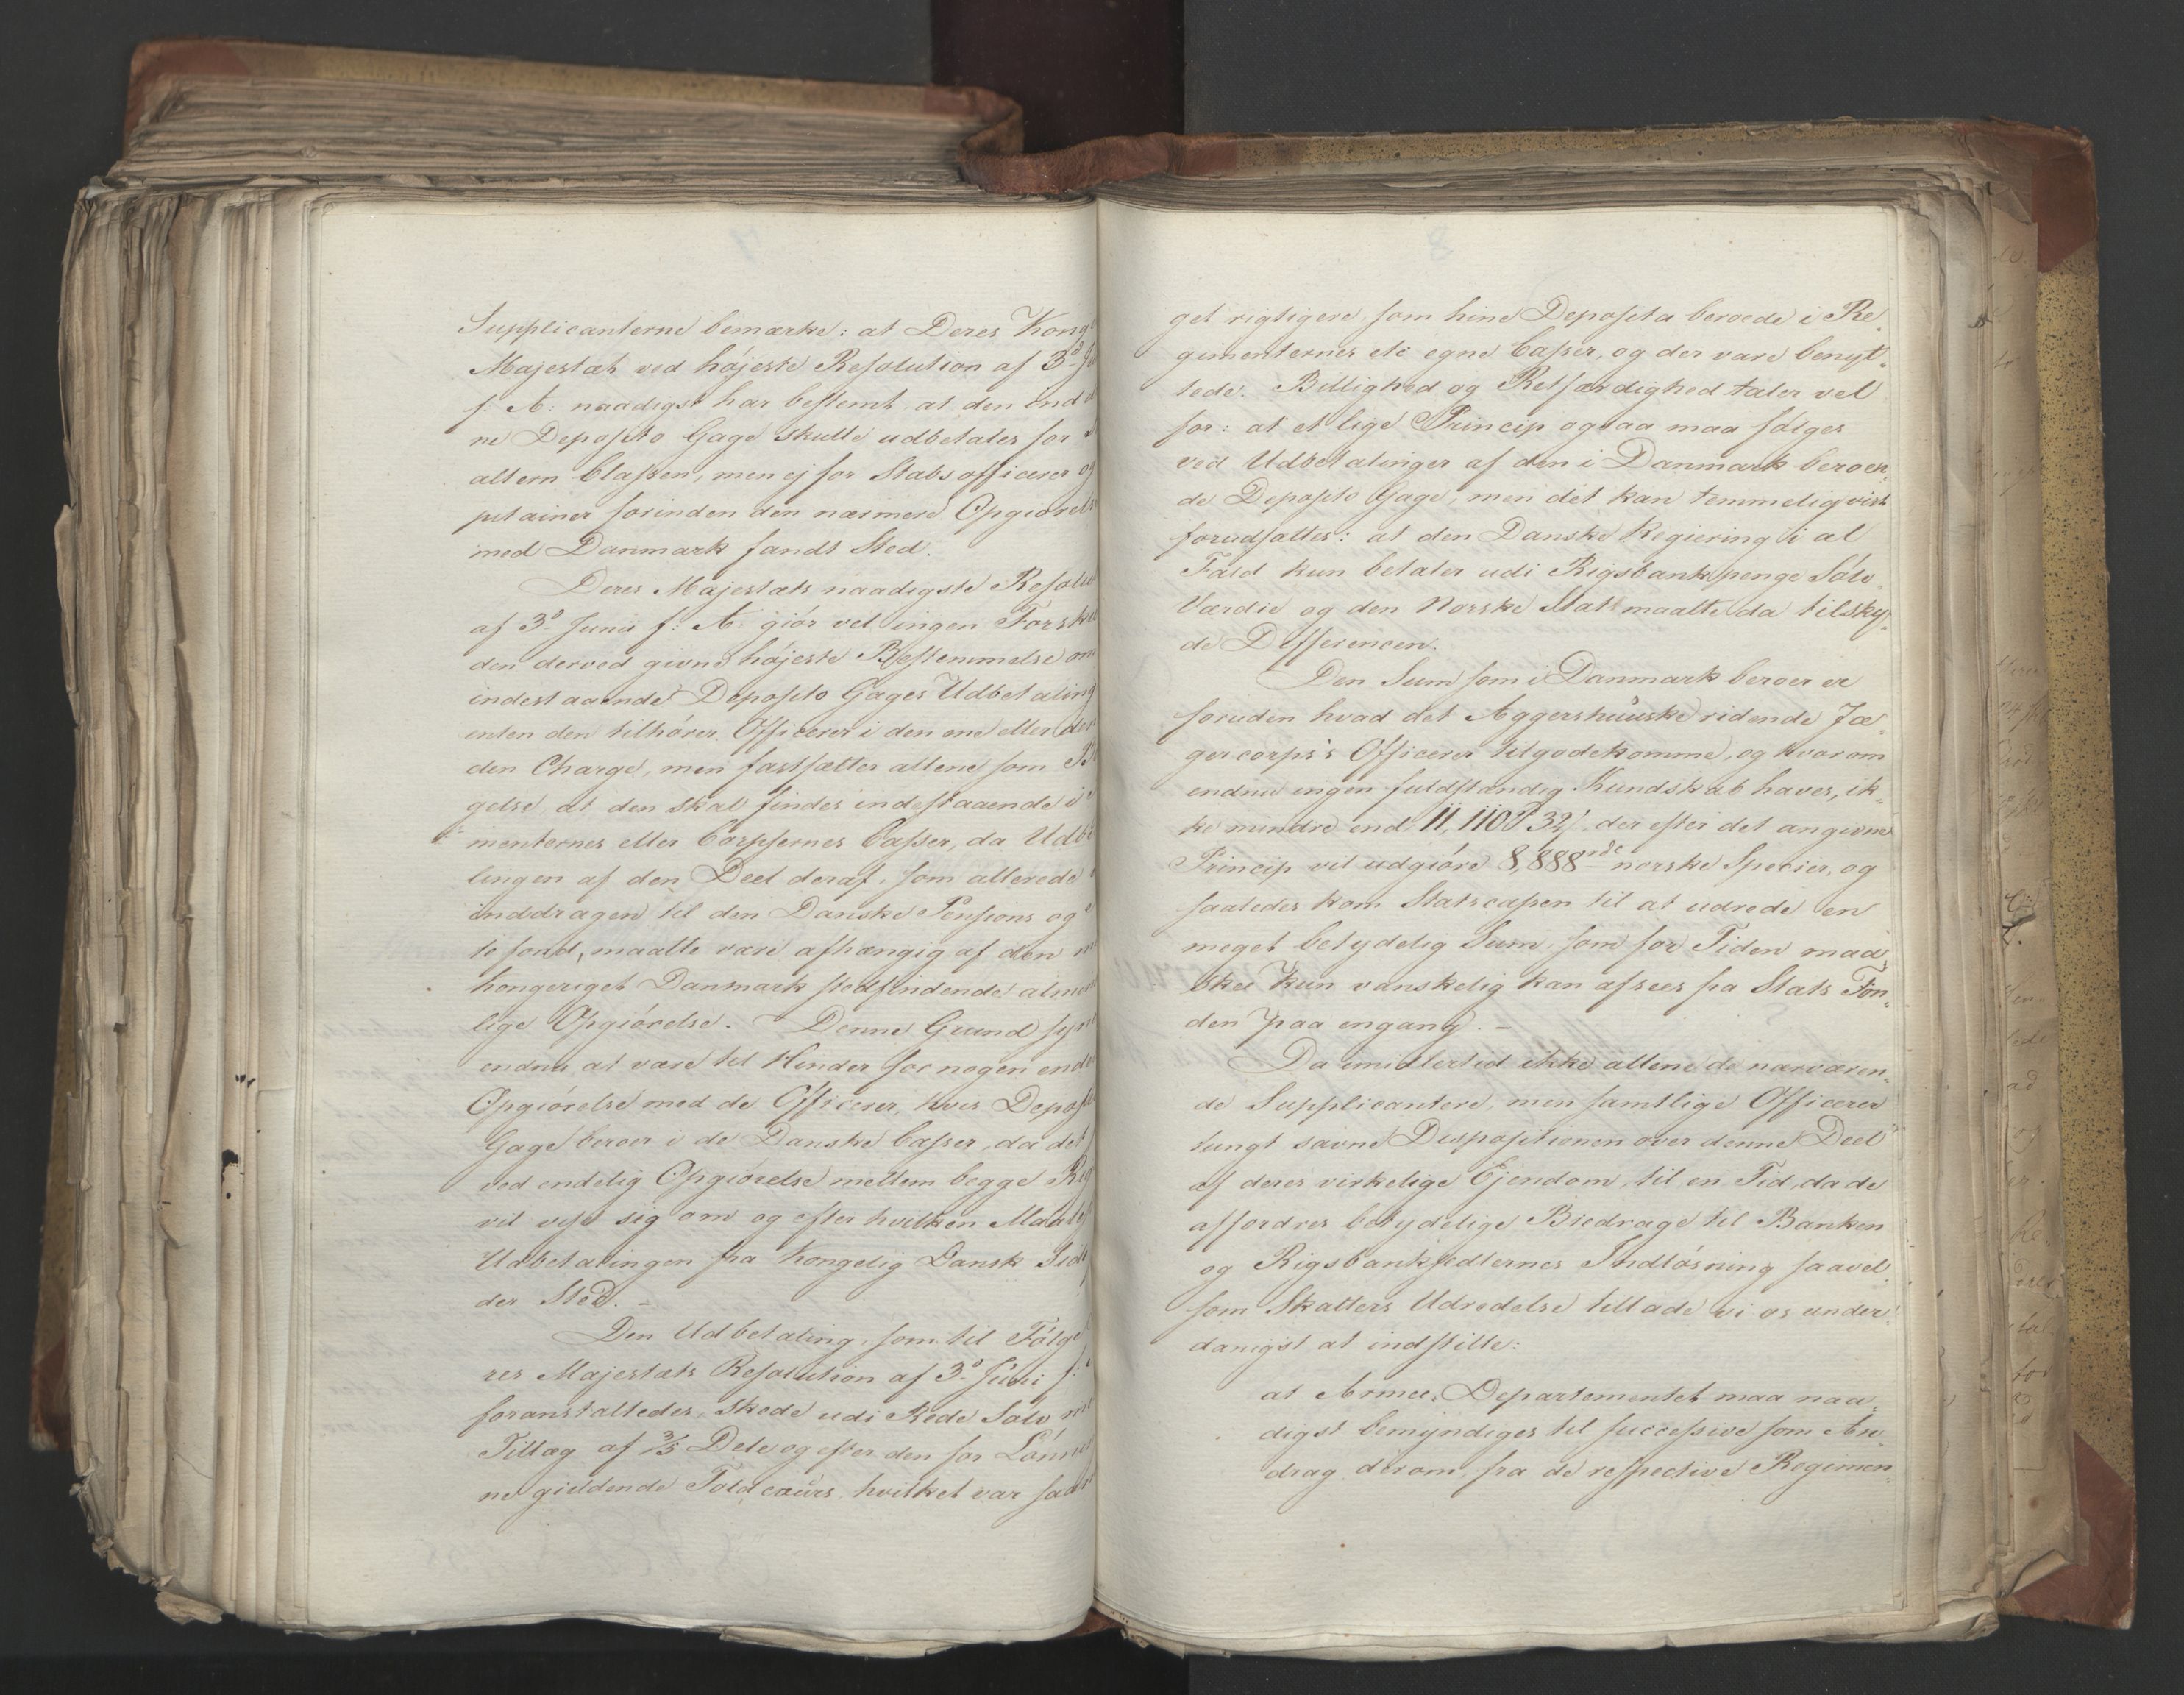 Supplicanterne bemærke: at Deres Konge
Majestæt ved højeste Resolution af 3d
f: A: naadigst har bestemt at den ind
ne Deposito Gage skulle udbetales for
altern Classen, men ej for Stabsofficerer og
pitainer forinden den nærmere Opgiørelse
med Danmark fandt Sted.
Deres Majestæts naadigste Resolu
af 3d Junii f: A: giør vel ingen Forskel
den derved givne højeste Bestemmelse om
indestaaende Deposito Gages Udbetaling
enten den tilhører Officerer i den ene eller den
den Charge, men fastsætter allene som
gelse at den skal findes indestaaende i
menternes eller Corpsernes Casser, da Udbe
lingen af den Deel deraf, som allerede
inddragen til den Danske Pensions og
te fond, maatte være afhængig af den
kongeriget Danmark stedfindende almin
lige Opgiørelse. Denne Grund synes
endnu at være til Hinder for nogen ende
Opgiørelse med de Officerer, hvis Deposito
Gage beroer i de Danske Casser, da det
ved endelig Opgiørelse mellem begge Rig
vil vise sig om og efter hvilken Maalest
Udbetalingen fra Kongelig Dansk Side
der Sted. -
Den Udbetaling, som til Følge
res Majestæts Resolution af 3d Junii f:
foranstaltedes, skede udi Rede Sølv
Tillæg af 3/5 Dele og efter den for Lønnin
ne gieldende Toldcours, hvilket var saa
get rigtigere, som hine Deposita beroede i Re-
gimenternes etc egne Casser, og der vare benyt-
tede. Billighed og Retfærdighed taler vel
for: at et lige Princip ogsaa maa følges
ved Udbetalinger af den i Danmark beroen-
de Deposito Gage, men det kan temmelig vist
forudsættes: at den Danske Regiering i al
Fald kun betaler udi Rigsbankpenge Sølv
Værdie og den Norske Stat maatte da tilsky-
de Differencen.
Den Sum som i Danmark beroer er
foruden hvad det Aggershuuske ridende Jæ-
gercorps's Officerer tilgodekomme, og hvorom
endnu ingen fuldstændig Kundskab haves, ik-
ke mindre end 11,110 32 der efter det angivne
Princip vil udgiøre 8,888 norske Specier, og
saaledes kom Statscassen til at udrede en
meget betydelig Sum, som for Tiden maa-
skee kun vanskelig kan afsees fra Stats Fon-
den paa engang. -
Da imidlertid ikke allene de nærværen-
de Supplicantere, men samtlige Officerer
tungt savne Dispositionen over denne Deel
af deres virkelige Ejendom, til en Tid, da de
affordres betydelige Biedrage til Banken
og Rigsbanksedlernes Indløsning saavel-
som Skatters Udredelse tillade vi os under-
danigst at indstille:
at Armee-Departementet maa naa-
digst bemyndiges til successive som An-
drag derom, fra de respective Regimen-